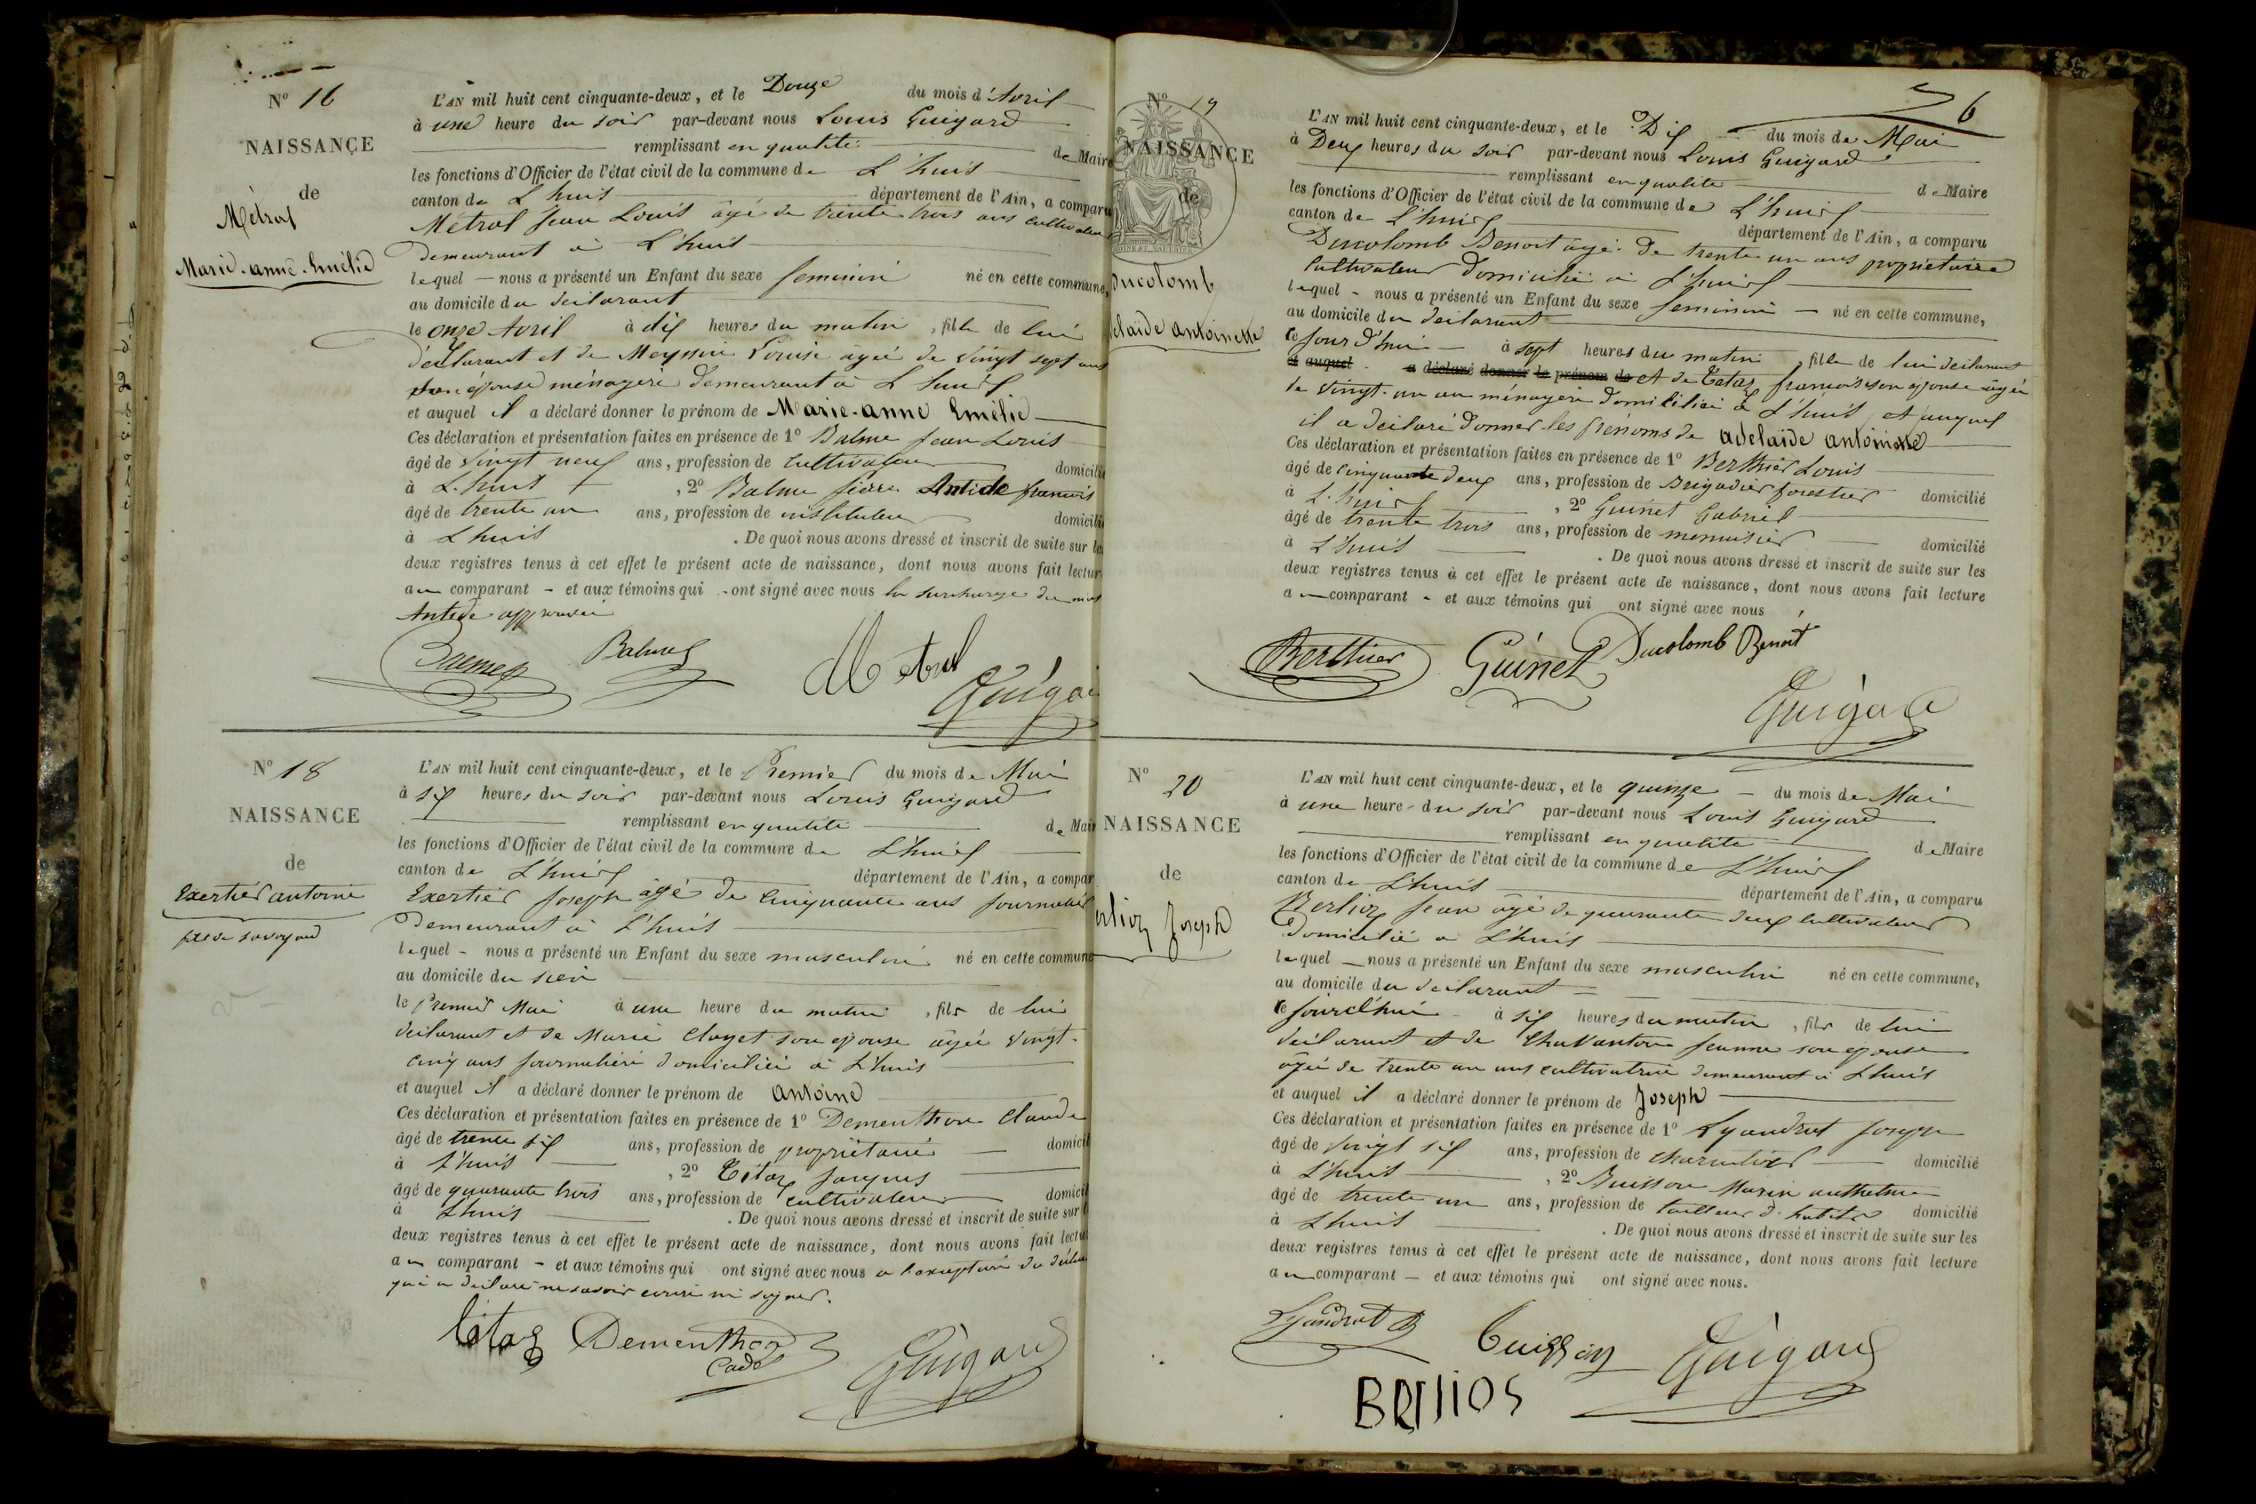 Nº 16
NAISSANCE
de
Métral
Marie-anne-Emélie
L'AN mil huit cent cinquante-deux, et le Douze du mois d'Avril
à une heure du soir par-devant nous Louis Guigard
remplissant en qualité de Maire
les fonctions d'Officier de l'état civil de la commune de L'huis
canton de L'huis département de l'Ain, a comparu
Métral Jean Louis âgé de trente trois ans cultivateur
demeurant à L'huis
lequel nous a présenté un Enfant du sexe feminin né en cette commune,
au domicile du déclarant
le onze Avril à dix heures du matin, fille de lui
déclarant et de Meyssin Louise âgée de vingt sept ans
son épouse ménagère demeurant à L'huis
et auquel il a déclaré donner le prénom de Marie-anne Emélie
Ces déclaration et présentation faites en présence de 1º Balme Jean Louis
âgé de vingt neuf ans, profession de cultivateur domicilié
à L'huis, 2º Balme pierre Antide francois
âgé de trente un ans, profession de instituteur domicilié
à L'huis. De quoi nous avons dressé et inscrit de suite sur les
deux registres tenus à cet effet le présent acte de naissance, dont nous avons fait lecture
au comparant et aux témoins qui ont signé avec nous la surcharge du mot
Antide approuvée
Balme Métral
Guigard
Nº 18
NAISSANCE
de
Exertier antoine
L'AN mil huit cent cinquante-deux, et le Premier du mois de Mai
à six heures du soir par-devant nous Louis Guigard
remplissant en qualité de Maire
les fonctions d'Officier de l'état civil de la commune de L'huis
canton de L'huis département de l'Ain, a comparu
Exertier Joseph âgé de cinquante ans journalier
demeurant à L'huis
lequel nous a présenté un Enfant du sexe masculin né en cette commune
au domicile du sien
le Premier Mai à une heure du matin, fils de lui
déclarant et de Marie Clayet son épouse âgée vingt-
cinq ans journalière domiciliée à L'huis
et auquel il a déclaré donner le prénom de antoine
Ces déclaration et présentation faites en présence de 1º Dementhon Claude
âgé de trente six ans, profession de propriétaire domicilié
à L'huis, 2º Titaz Jacques
âgé de quarante trois ans, profession de cultivateur domicilié
à L'huis. De quoi nous avons dressé et inscrit de suite sur les
deux registres tenus à cet effet le présent acte de naissance, dont nous avons fait lecture
au comparant et aux témoins qui ont signé avec nous a l'exception du déclarant
qui a déclaré ne savoir écrire ni signer.
Titaz Dementhon
Cadet
Guigard
6
Nº 19
NAISSANCE
de
Ducolomb
elaide antoinette
L'AN mil huit cent cinquante-deux, et le Dix du mois de Mai
à Deux heures du soir par-devant nous Louis Guigard
remplissant en qualité de Maire
les fonctions d'Officier de l'état civil de la commune de L'huis
canton de L'huis département de l'Ain, a comparu
Ducolomb Benoit âgé de trente un ans propriétaire
cultivateur domicilié à L'huis
lequel nous a présenté un Enfant du sexe feminin né en cette commune,
au domicile du déclarant
ce jour d'hui à sept heures du matin, fille de lui déclarant
et auquel a déclaré donner le prénom de et de Titaz francoise son épouse âgée
de vingt-un an ménagère domiciliée à L'huis, et auquel
il a déclaré donner les prénoms de adelaïde antoinette
Ces déclaration et présentation faites en présence de 1º Berthier Louis
âgé de cinquante deux ans, profession de Brigadier forestier domicilié
à L'huis, 2º Guinet Gabriel
âgé de trente trois ans, profession de menuisier domicilié
à L'huis. De quoi nous avons dressé et inscrit de suite sur les
deux registres tenus à cet effet le présent acte de naissance, dont nous avons fait lecture
au comparant et aux témoins qui ont signé avec nous
Berthier Guinet Ducolomb Benoit
Guigard
Nº 20
NAISSANCE
de
erlioz Joseph
L'AN mil huit cent cinquante-deux, et le quinze du mois de Mai
à une heure du soir par-devant nous Louis Guigard
remplissant en qualité de Maire
les fonctions d'Officier de l'état civil de la commune de L'huis
canton de L'huis département de l'Ain, a comparu
Berlioz Jean âgé de quarante deux cultivateur
domicilié à L'huis
lequel nous a présenté un Enfant du sexe masculin né en cette commune,
au domicile du déclarant
ce jourd'hui à six heures du matin, fils de lui
déclarant et de Chavanton Jeanne son épouse
âgée de trente un ans cultivatrice demeurant à L'huis
et auquel il a déclaré donner le prénom de Joseph
Ces déclaration et présentation faites en présence de 1º Lyaudrat Joseph
âgé de vingt six ans, profession de charcutier domicilié
à L'huis, 2º Buisson Marin anthelme
âgé de trente un ans, profession de tailleur d'habits domicilié
à L'huis. De quoi nous avons dressé et inscrit de suite sur les
deux registres tenus à cet effet le présent acte de naissance, dont nous avons fait lecture
au comparant et aux témoins qui ont signé avec nous.
Lyaudrat Buisson Guigard